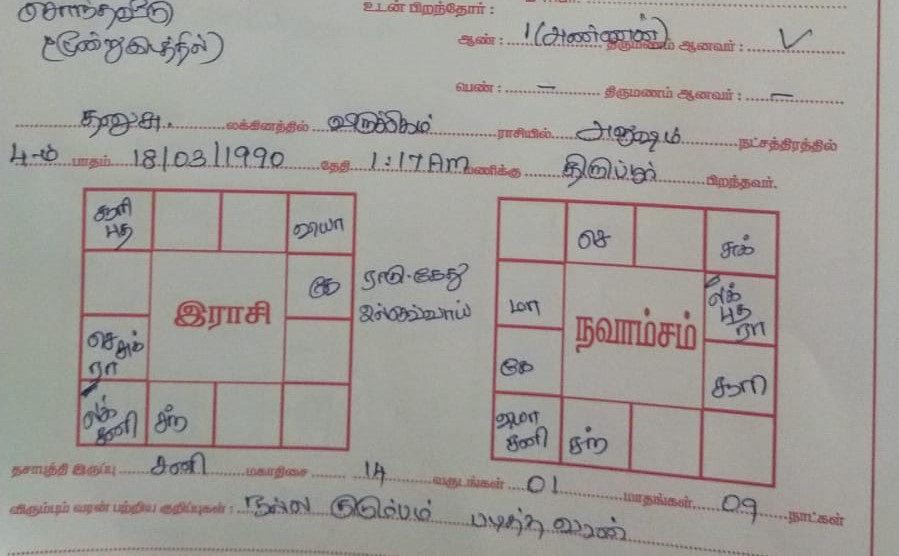 சொந்தவீடு
உடன் பிறந்தோர் :
(மூன்று இடத்தில்)
ஆண் : 1 (அண்ணன்) திருமணம் ஆனவர் : ✓
பெண் : – திருமணம் ஆனவர் : –
தனுசு லக்கினத்தில் விருச்சிகம் ராசியில் அனுஷம் நட்சத்திரத்தில்
4-ம் பாதம் 18/03/1990 தேதி 1:17 AM மணிக்கு திருப்பூர் பிறந்தவர்.
சூரி
புத
கே
ராகு-கேது
செவ்வாய்
இராசி
செ சுக்
ரா
லக்
சனி
சந்
செ
சுக்
மா
லக்
புத
ரா
நவாம்சம்
கே
சூரி
சனி
சந்
தசாபுத்தி இருப்பு சனி மகாதிசை 14 வருடங்கள் 01 மாதங்கள் 09 நாட்கள்
விரும்பும் வரன் பற்றிய குறிப்புகள் : நல்ல குடும்பம் படித்த வரன்